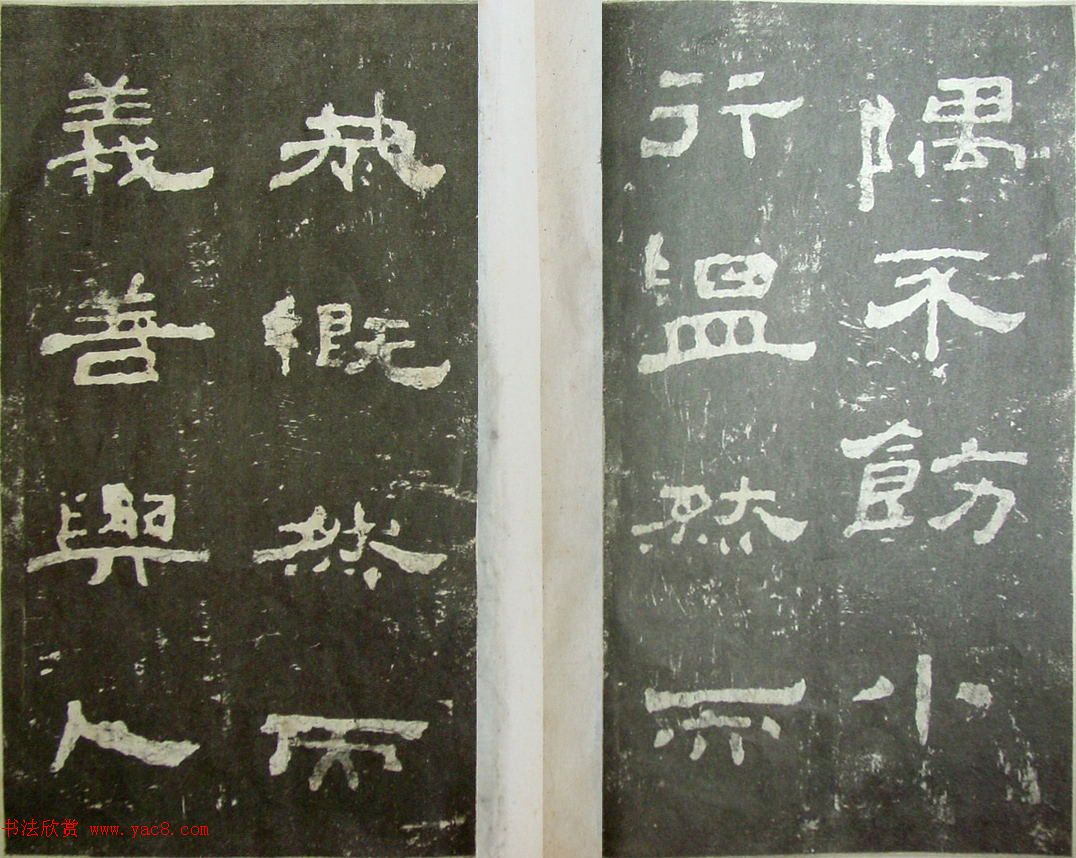 隅不飭小
行溫然而
恭慨然而
義善與人
书法欣赏 www.yac8.com